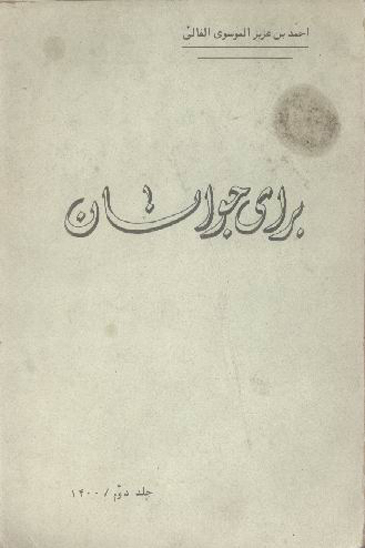 احمد بن عزیز الموسوی الفالی
برای جوانان
جلد دوّم / ۱۴۰۰